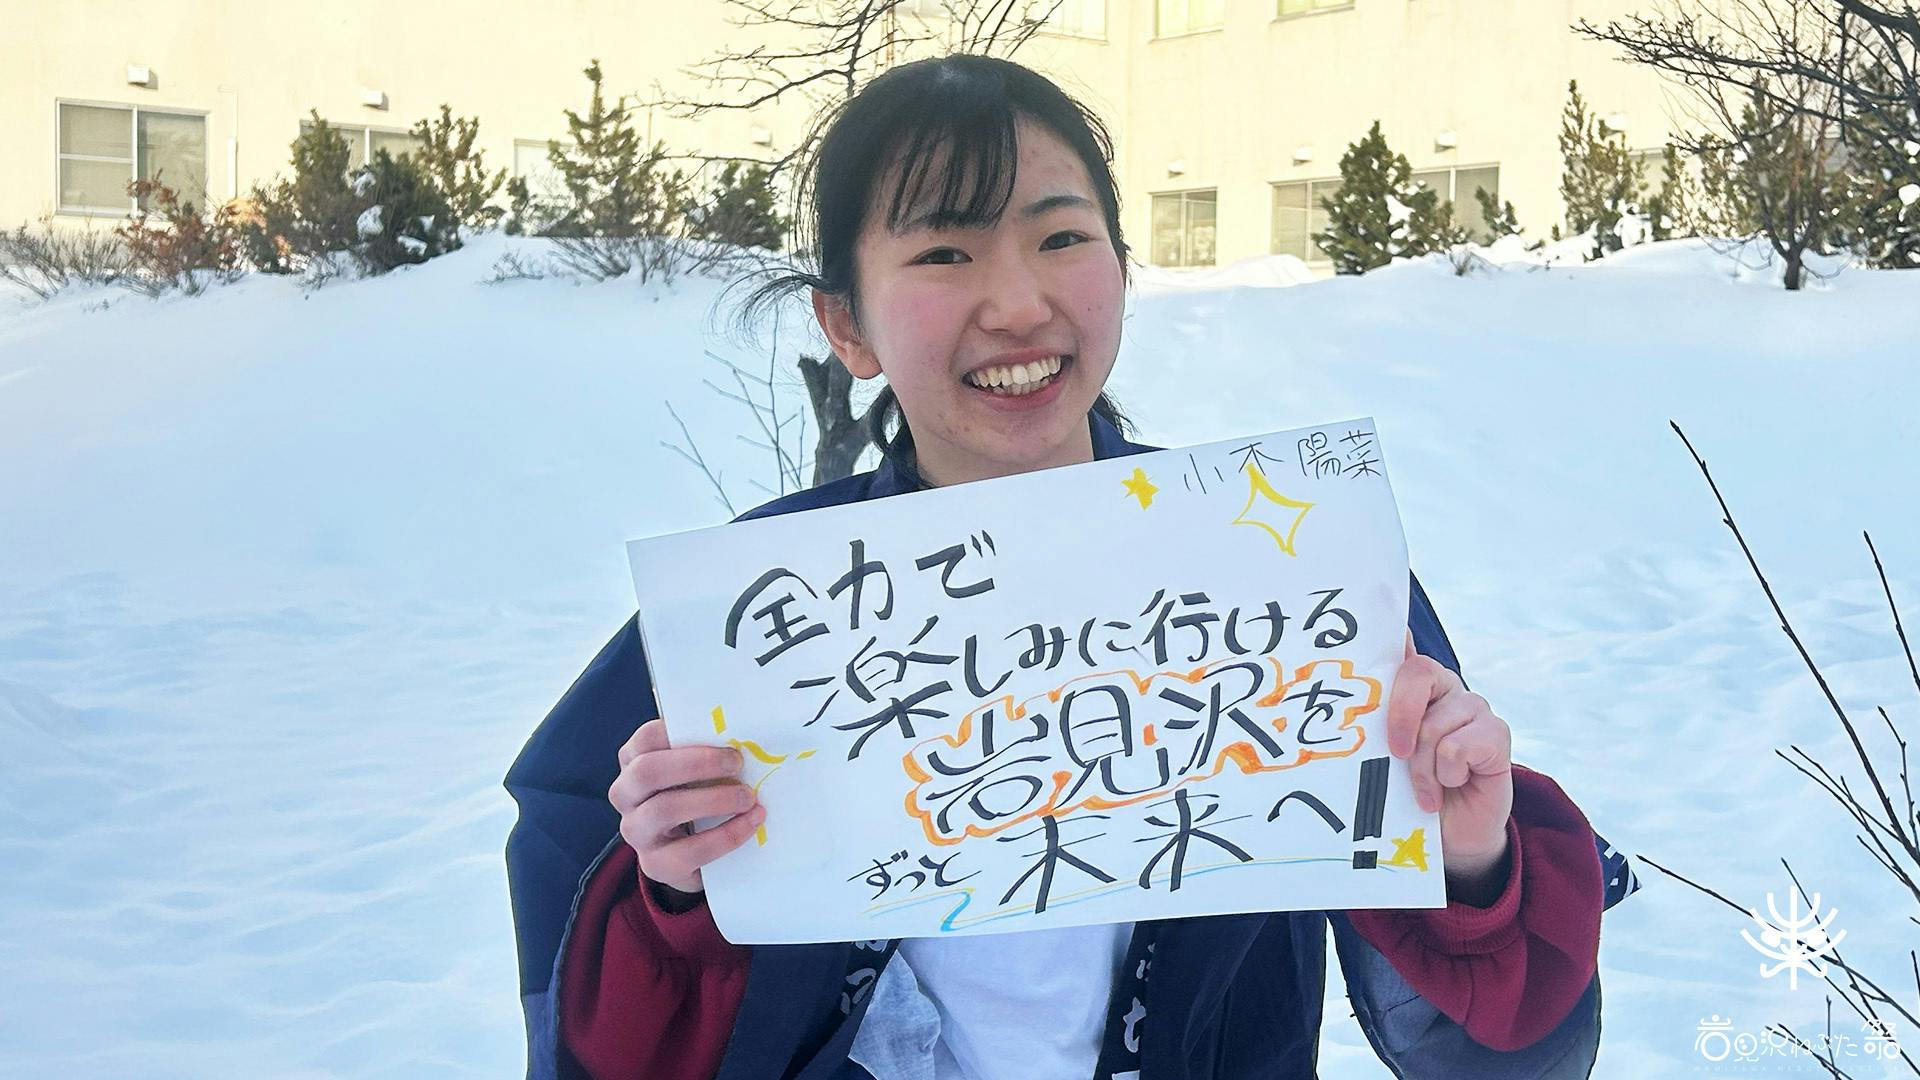 小木 陽菜
全力で
楽しみに行ける
岩見沢を
ずっと 未来へ!
岩見沢ねぶた祭